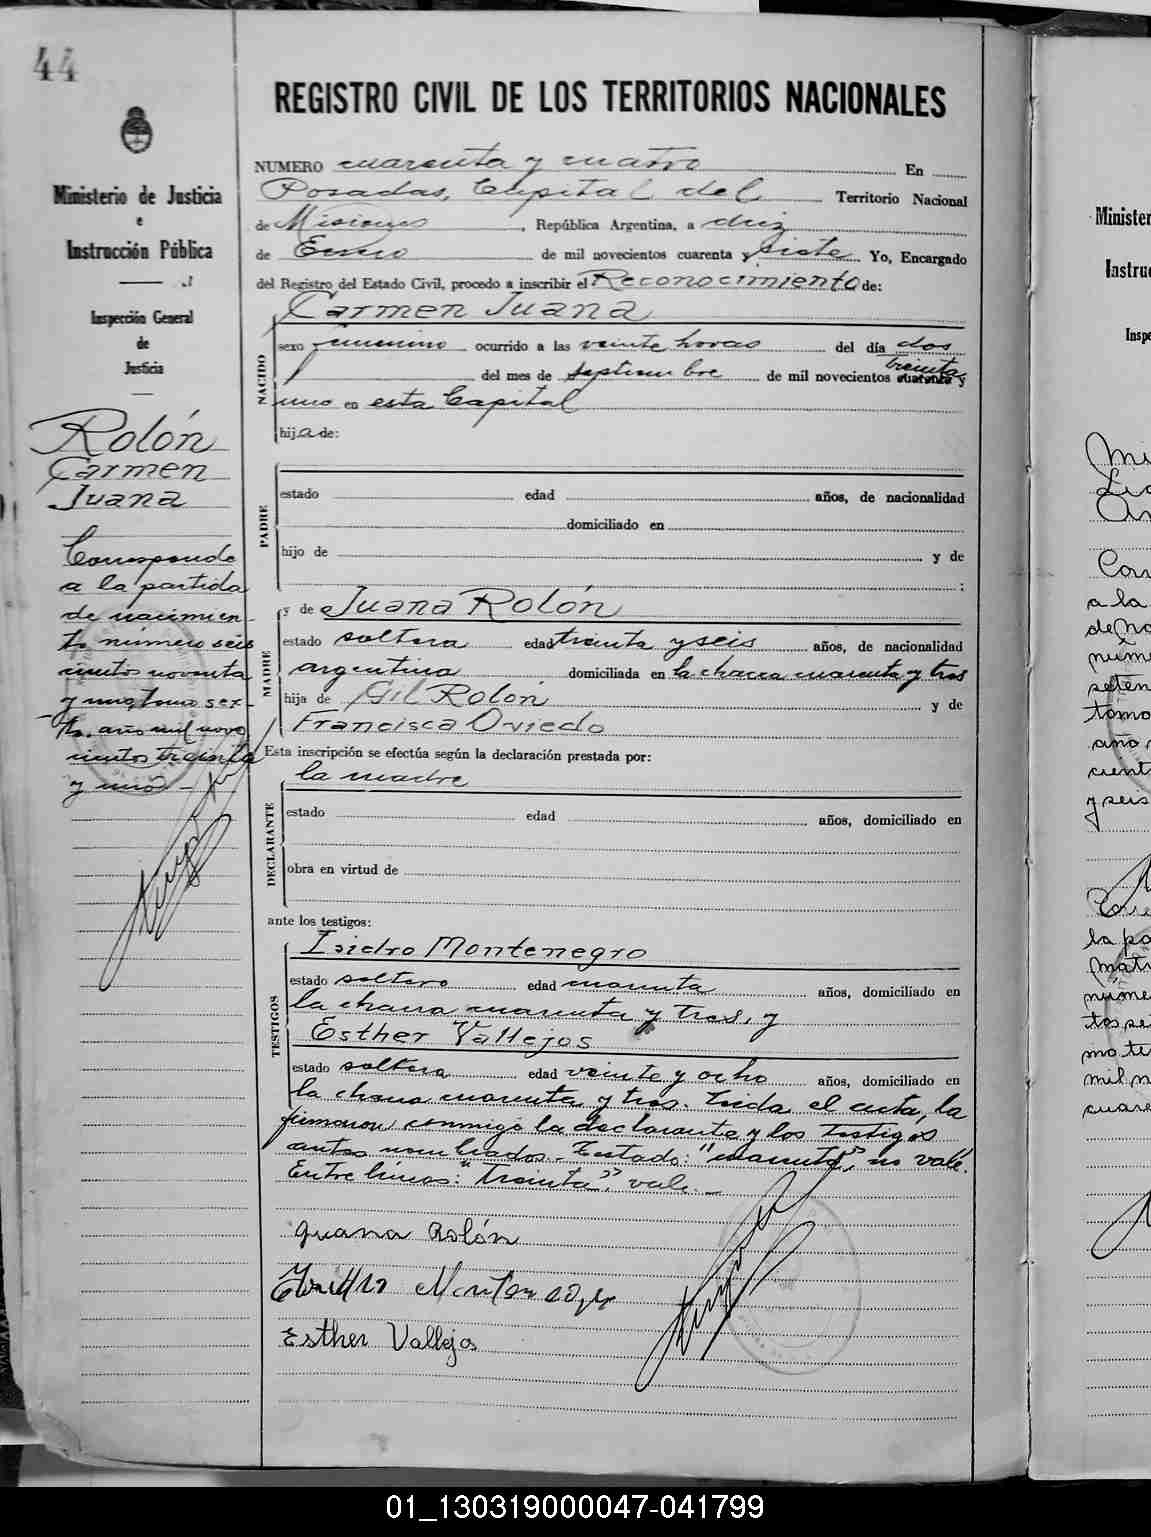 44
REGISTRO CIVIL DE LOS TERRITORIOS NACIONALES
Ministerio de Justicia
e
Instrucción Pública
Inspección General
de
Justicia
Rolón
Carmen
Juana
Corresponde
a la partida
de nacimien-
to número seis
cientos noventa
y uno, tomo sex-
to, año mil nove
cientos treinta
y uno -
NUMERO cuarenta y cuatro En
Posadas, Capital del Territorio Nacional
de Misiones, República Argentina, a diez
de Enero de mil novecientos cuarenta y siete Yo, Encargado
del Registro del Estado Civil, procedo a inscribir el Reconocimiento de:
Carmen Juana
NACIDO
sexo femenino ocurrido a las veinte horas del día dos
treinta
del mes de septiembre de mil novecientos cuarenta y
uno en esta Capital
hija de:
PADRE
estado edad años, de nacionalidad
domiciliado en
hijo de y de
;
MADRE
y de Juana Rolón
estado soltera edad treinta y seis años, de nacionalidad
argentina domiciliada en la chacra cuarenta y tres
hija de Gil Rolón y de
Francisca Oviedo
Esta inscripción se efectúa según la declaración prestada por:
la madre
DECLARANTE
estado edad años, domiciliado en
obra en virtud de
ante los testigos:
TESTIGOS
Isidro Montenegro
estado soltero edad cuarenta años, domiciliado en
la chacra cuarenta y tres, y
Esther Vallejos
estado soltera edad veinte y ocho años, domiciliado en
la chacra cuarenta y tres. Leída el acta, la
firmaron conmigo la declarante y los testigos
antes nombrados. Testado: "cuarenta", no vale.
Entre líneas: "treinta", vale. -
Juana Rolón
Esther Vallejos
Minister
Instruc
Inspe
Corr
a la
de na
núme
seten
tomo
año
cient
y seis
la pa
matr
nume
tos se
mo te
mil n
cuare
01_130319000047-041799